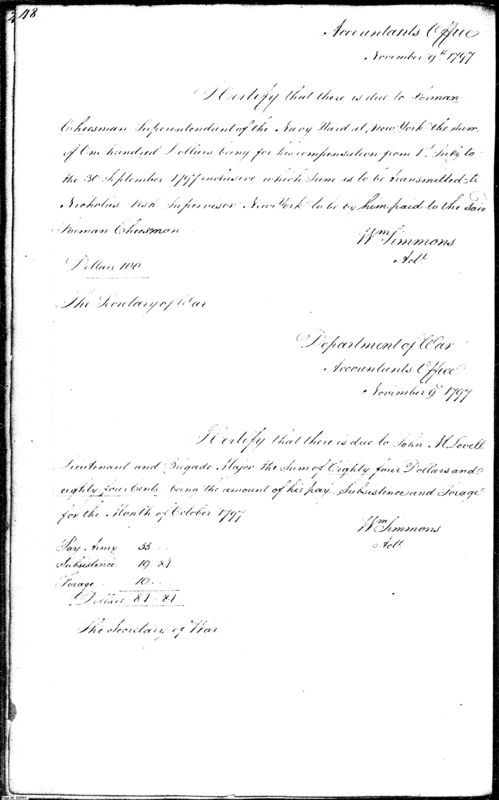 248
Accountants Office
November 9th 1797
I Certify that there is due to Forman
Cheesman Superintendant of the Navy Yard at New York the sum
of One hundred Dollars being for his compensation from 1st July to
the 30 September 1797 inclusive which Sum is to be transmitted to
Nicholas Fish Supervisor New York to be by him paid to the said
Forman Cheesman
Wm Simmons
Actt
Dollars 100
The Secretary of War
Department of War
Accountants Office
November 9th 1797
I Certify that there is due to John M. Lovell
Lieutenant and Brigade Major the Sum of Eighty four Dollars and
eighty four Cents being the amount of his pay Subsistence and Forage
for the Month of October 1797
Wm Simmons
Actt
Pay Army 55
Subsistence 19 84
Forage 10
Dollars 84 84
The Secretary of War